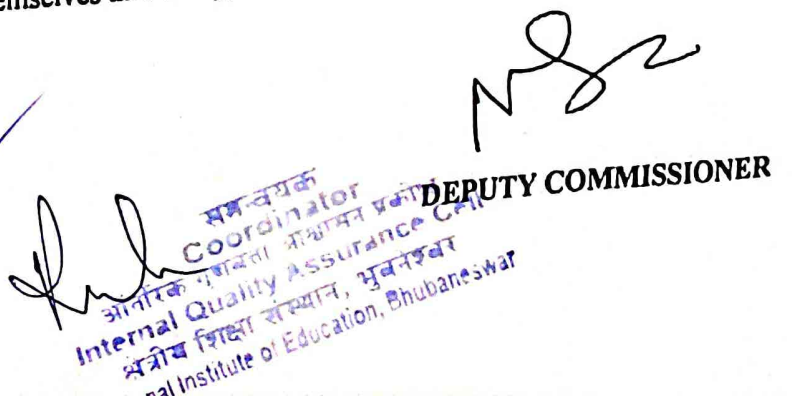 DEPUTY COMMISSIONER
समन्वयक
Coordinator
आंतरिक गुणवत्ता आश्वासन प्रकोष्ठ
Internal Quality Assurance Cell
क्षेत्रीय शिक्षा संस्थान, भुवनेश्वर
nal Institute of Education, Bhubaneswar